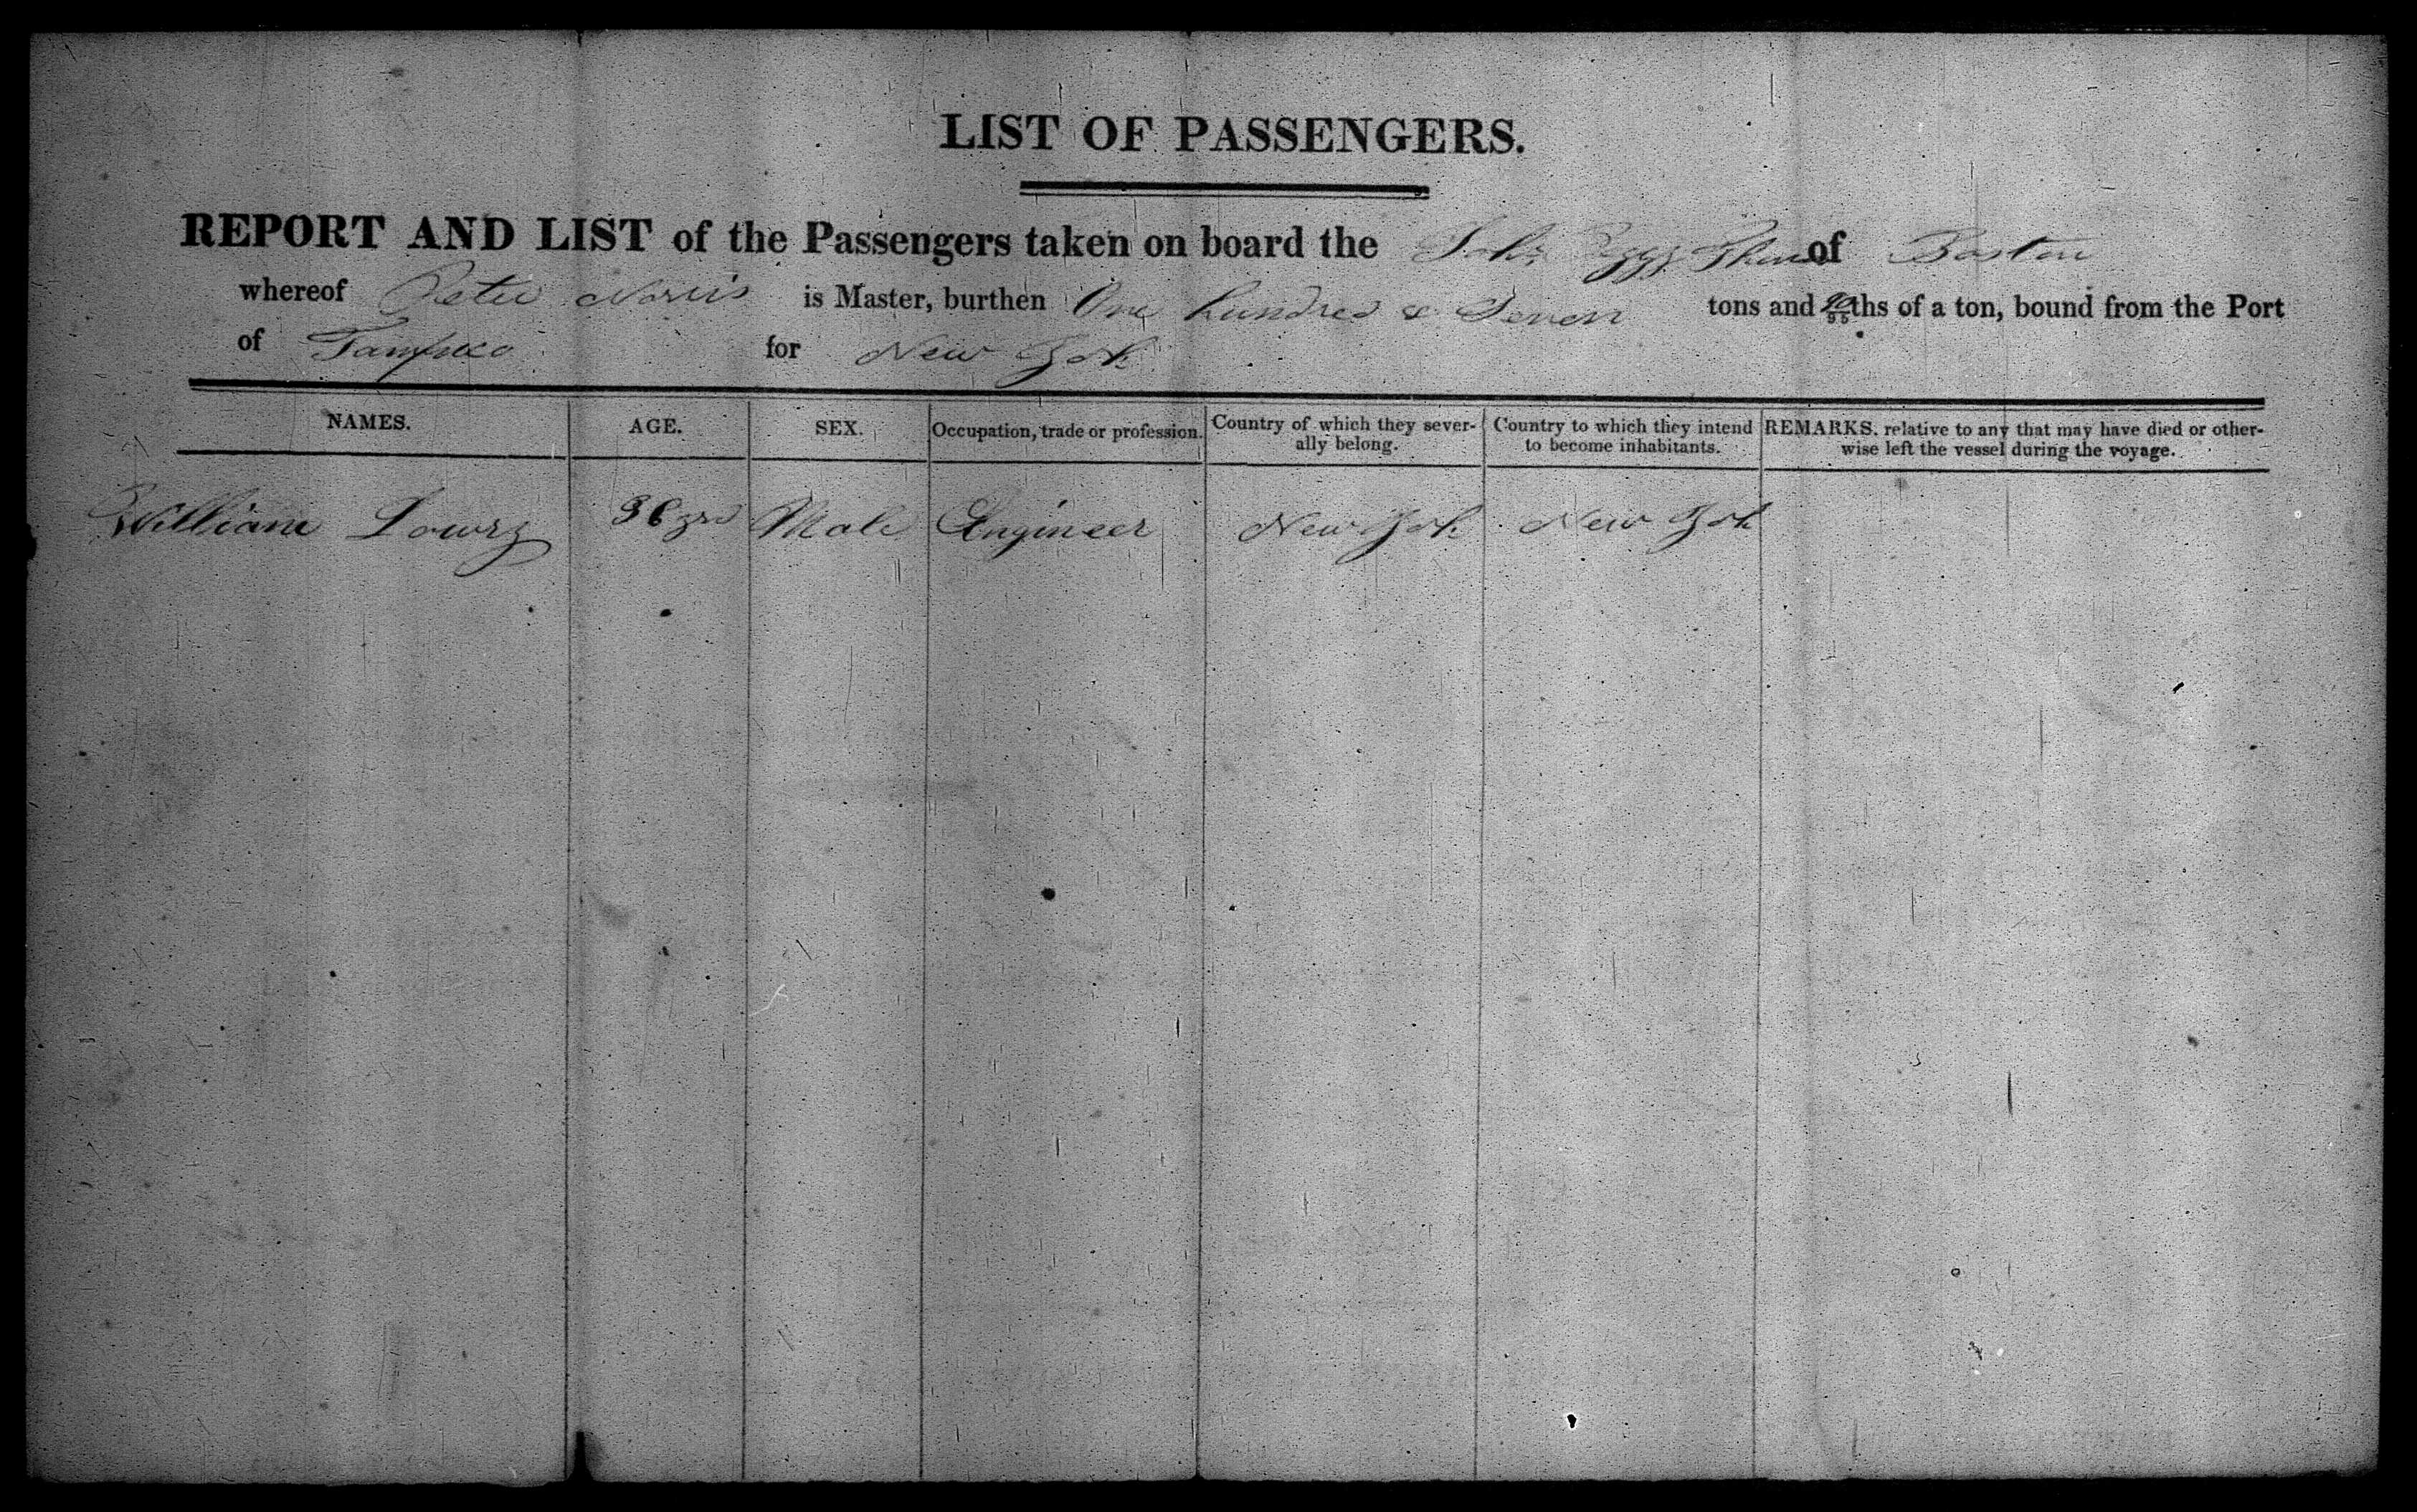 LIST OF PASSENGERS.
REPORT AND LIST of the Passengers taken on board the of Boston
whereof Peter Norris is Master, burthen One hundred & Seven tons and ths of a ton, bound from the Port
of Tampico for New York
NAMES. AGE. SEX. Occupation, trade or profession. Country of which they sever- Country to which they intend REMARKS. relative to any that may have died or other-
ally belong. to become inhabitants. wise left the vessel during the voyage.
William Lowry 36 yrs Male Engineer New York New York